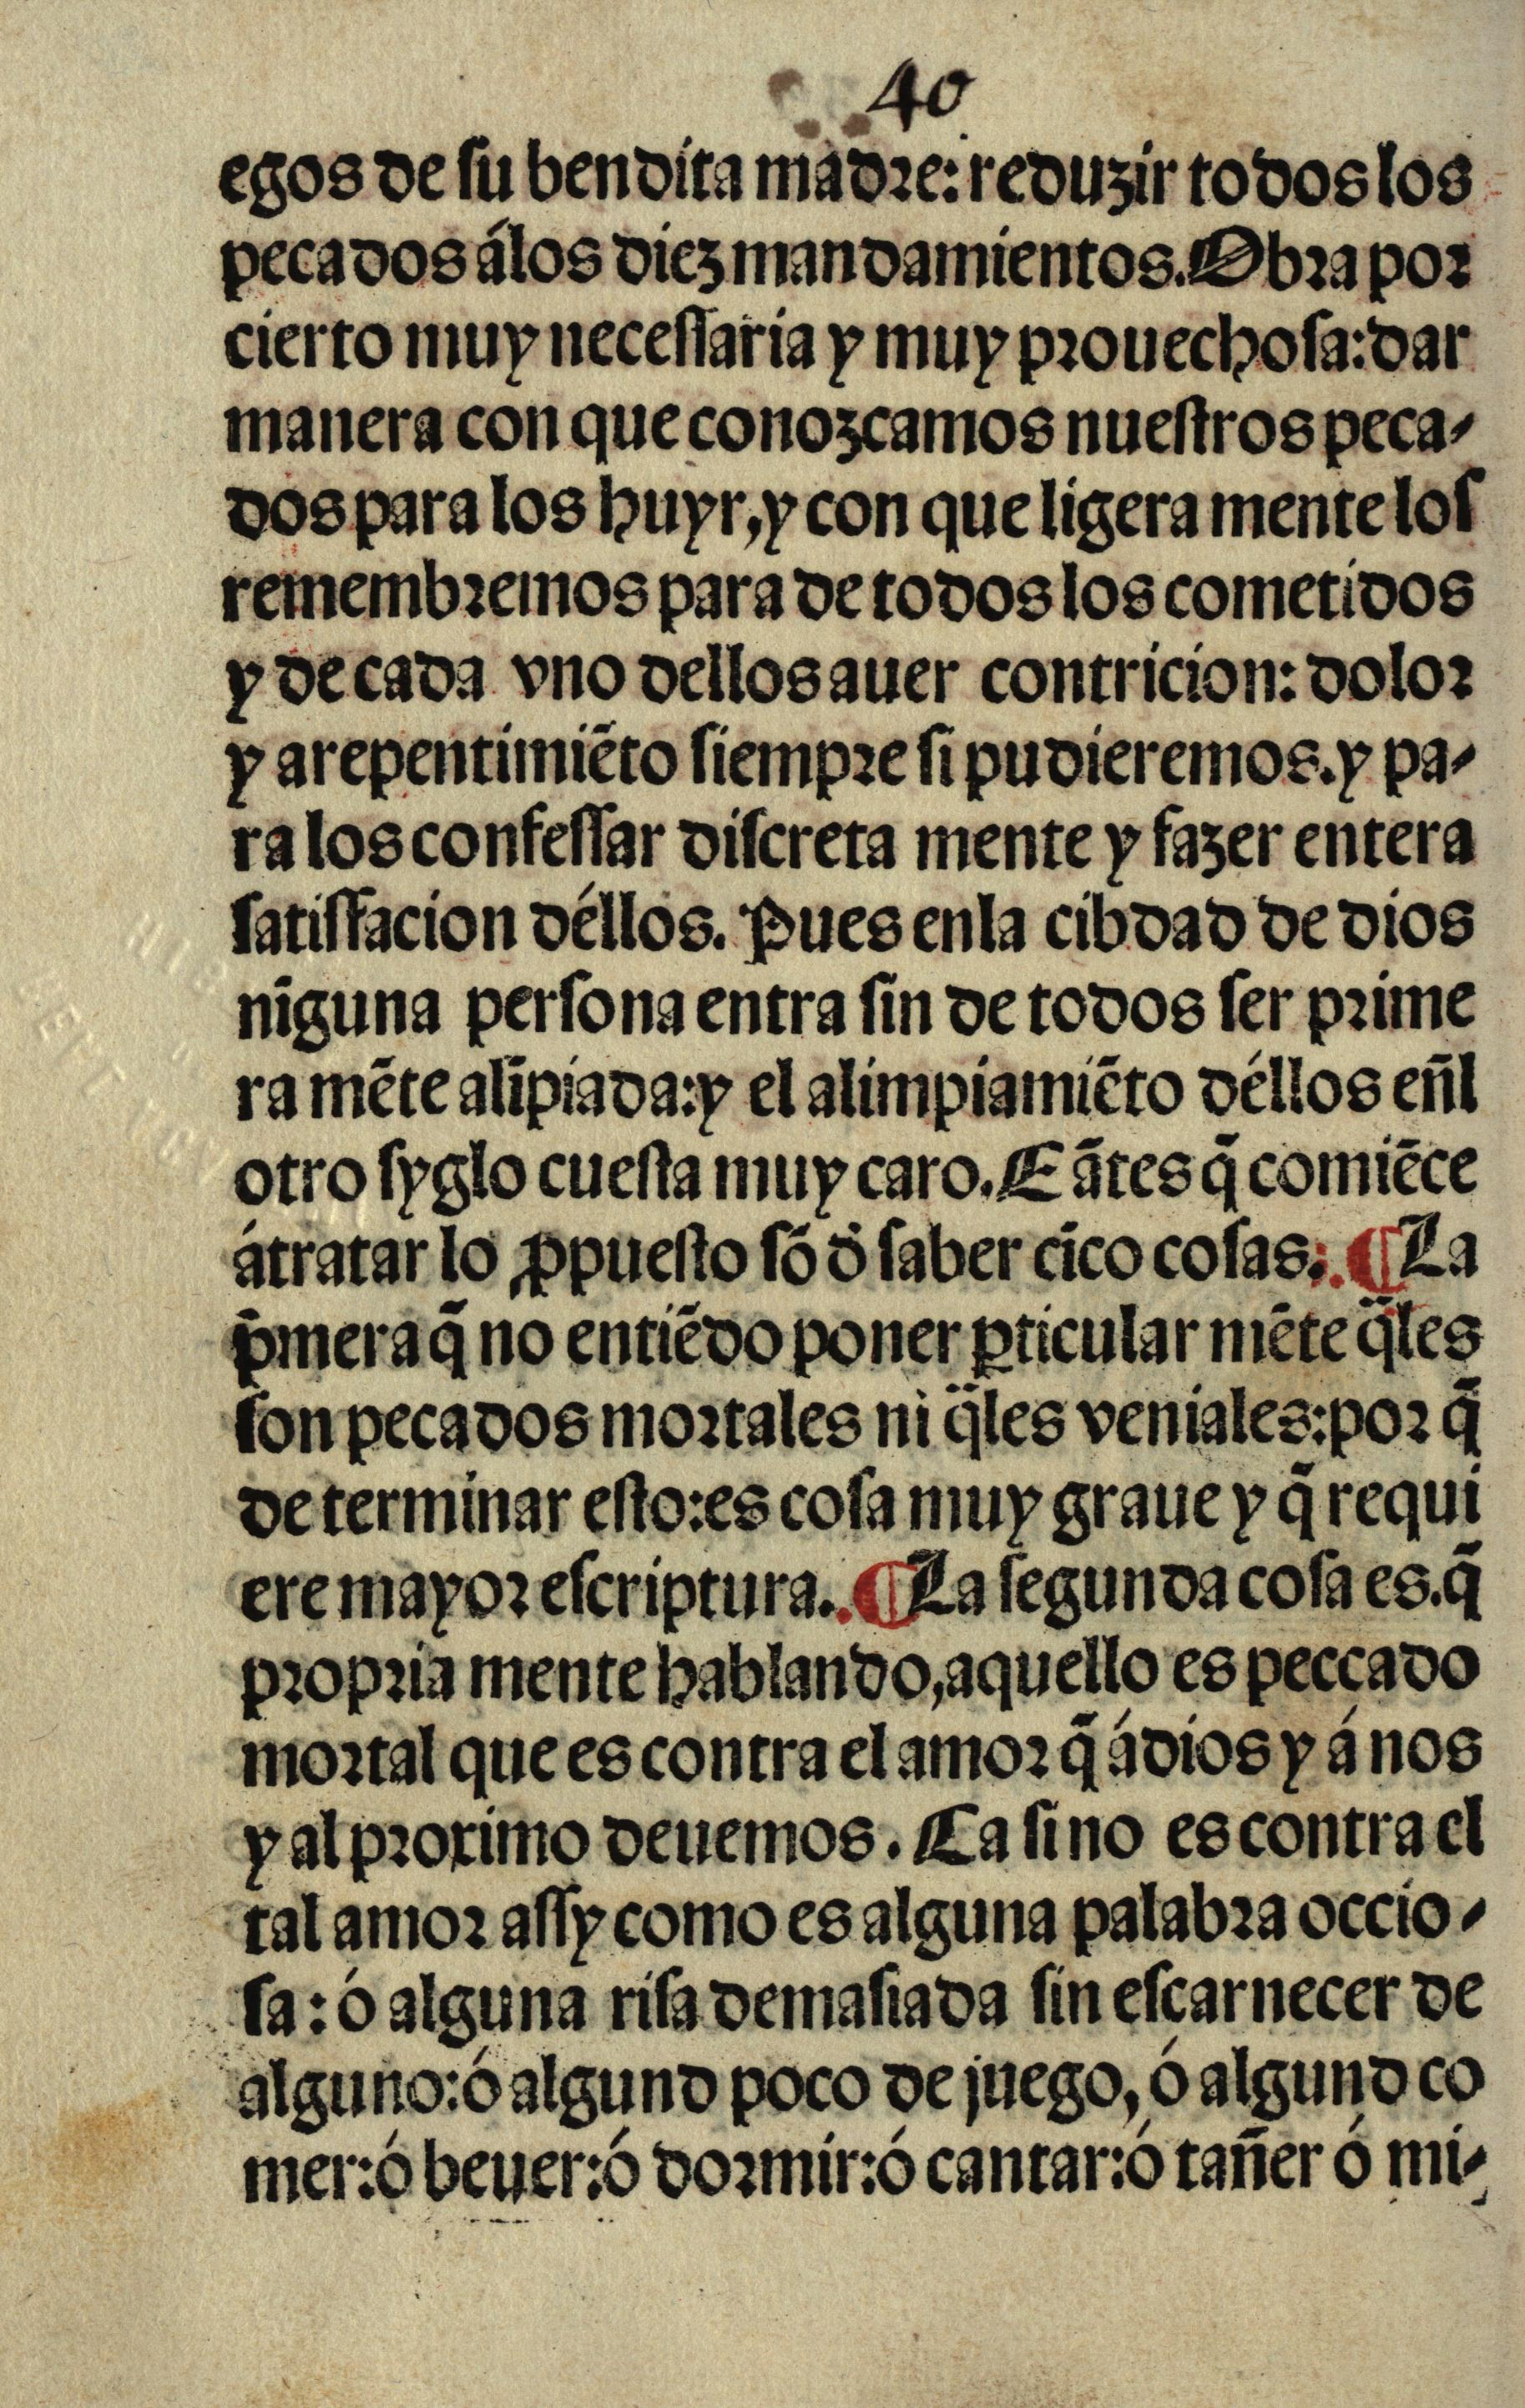 40
egos de su bendita madre: reduzir todos los
pecados álos diez mandamientos. Obra por
cierto muy necessaria y muy prouechosa: dar
manera con que conozcamos nuestros peca-
dos para los huyr, y con que ligera mente los
remembremos para de todos los cometidos
y de cada vno dellos auer contricion: dolor
y arepentimiēto siempre si pudieremos. y pa-
ra los confessar discreta mente y fazer entera
satisfacion déllos. Pues enla cibdad de dios
nīguna persona entra sin de todos ser prime
ra mēte alīpiada: y el alimpiamiēto déllos eñl
otro syglo cuesta muy caro. E ātes q̄ comiēce
átratar lo ꝓpuesto sō d̄ saber cīco cosas. ¶ La
p̄mera q̄ no entiēdo poner ꝑticular mēte q̈les
son pecados mortales ni q̈les veniales: por q̄
de terminar esto: es cosa muy graue y q̄ requi
ere mayor escriptura. ¶ La segunda cosa es. q̄
propria mente hablando, aquello es peccado
mortal que es contra el amor q̄ ádios y á nos
y al proximo deuemos. Ca si no es contra el
tal amor assy como es alguna palabra occio-
sa: ó alguna risa demasiada sin escarnecer de
alguno: ó algund poco de juego, ó algund co
mer: ó beuer: ó dormir: ó cantar: ó tañer ó mi-